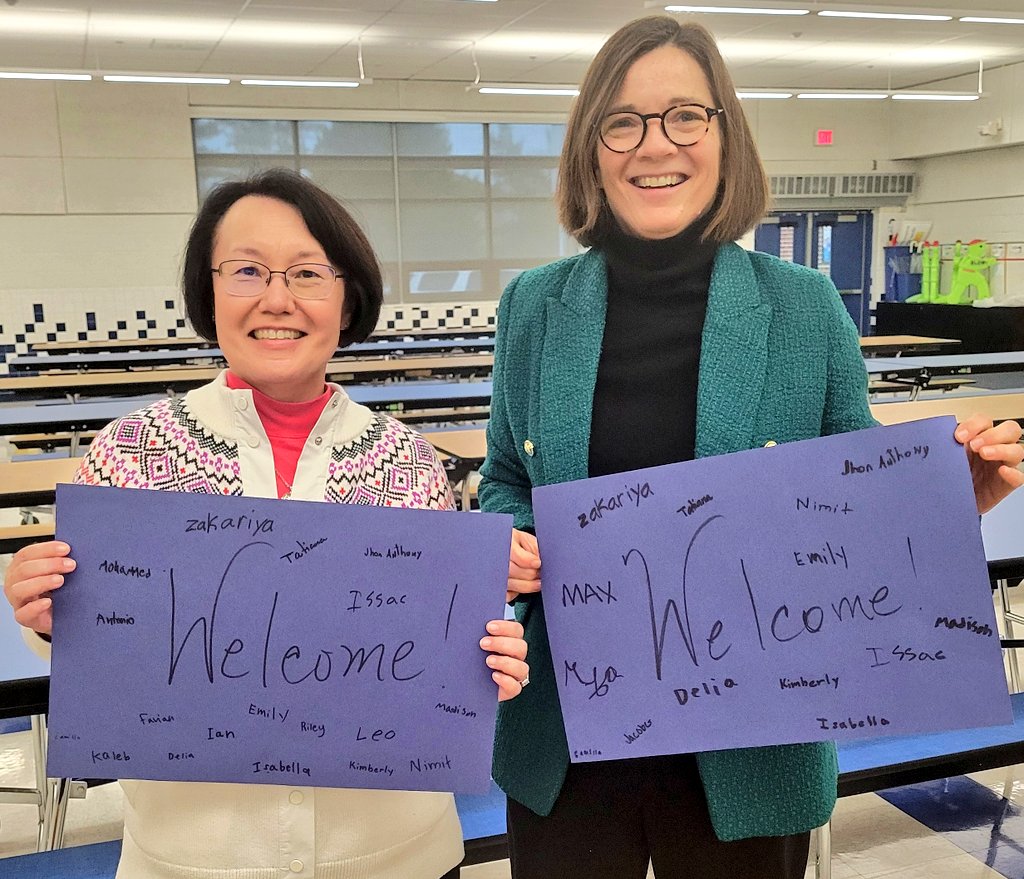 zakariya
Tatiana
Jhon Anthony
Mohammed
Issac
Antonio
Welcome!
Madison
Favian
Emily
Riley
Ian
Leo
Camilla
Kaleb
Delia
Isabella
Kimberly
Nimit
Jhon Anthony
zakariya
Tatiana
Nimit
Emily
MAX
Welcome!
Madison
Issac
Delia
Kimberly
Isabella
Jacobus
Camilla